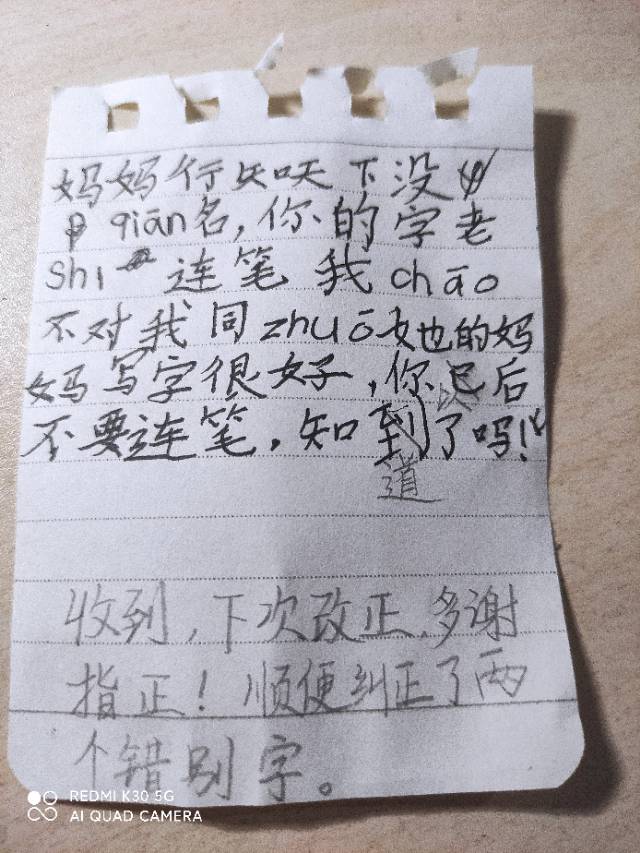 妈妈行天呋下没
qiān名,你的字老
Shi 连笔 我chāo
不对我同zhuō她的妈
妈写字很好,你已后
以
不要连笔,知到了吗!
道
收到,下次改正,多谢
指正!顺便纠正了两
个错别字。
REDMI K30 5G
AI QUAD CAMERA